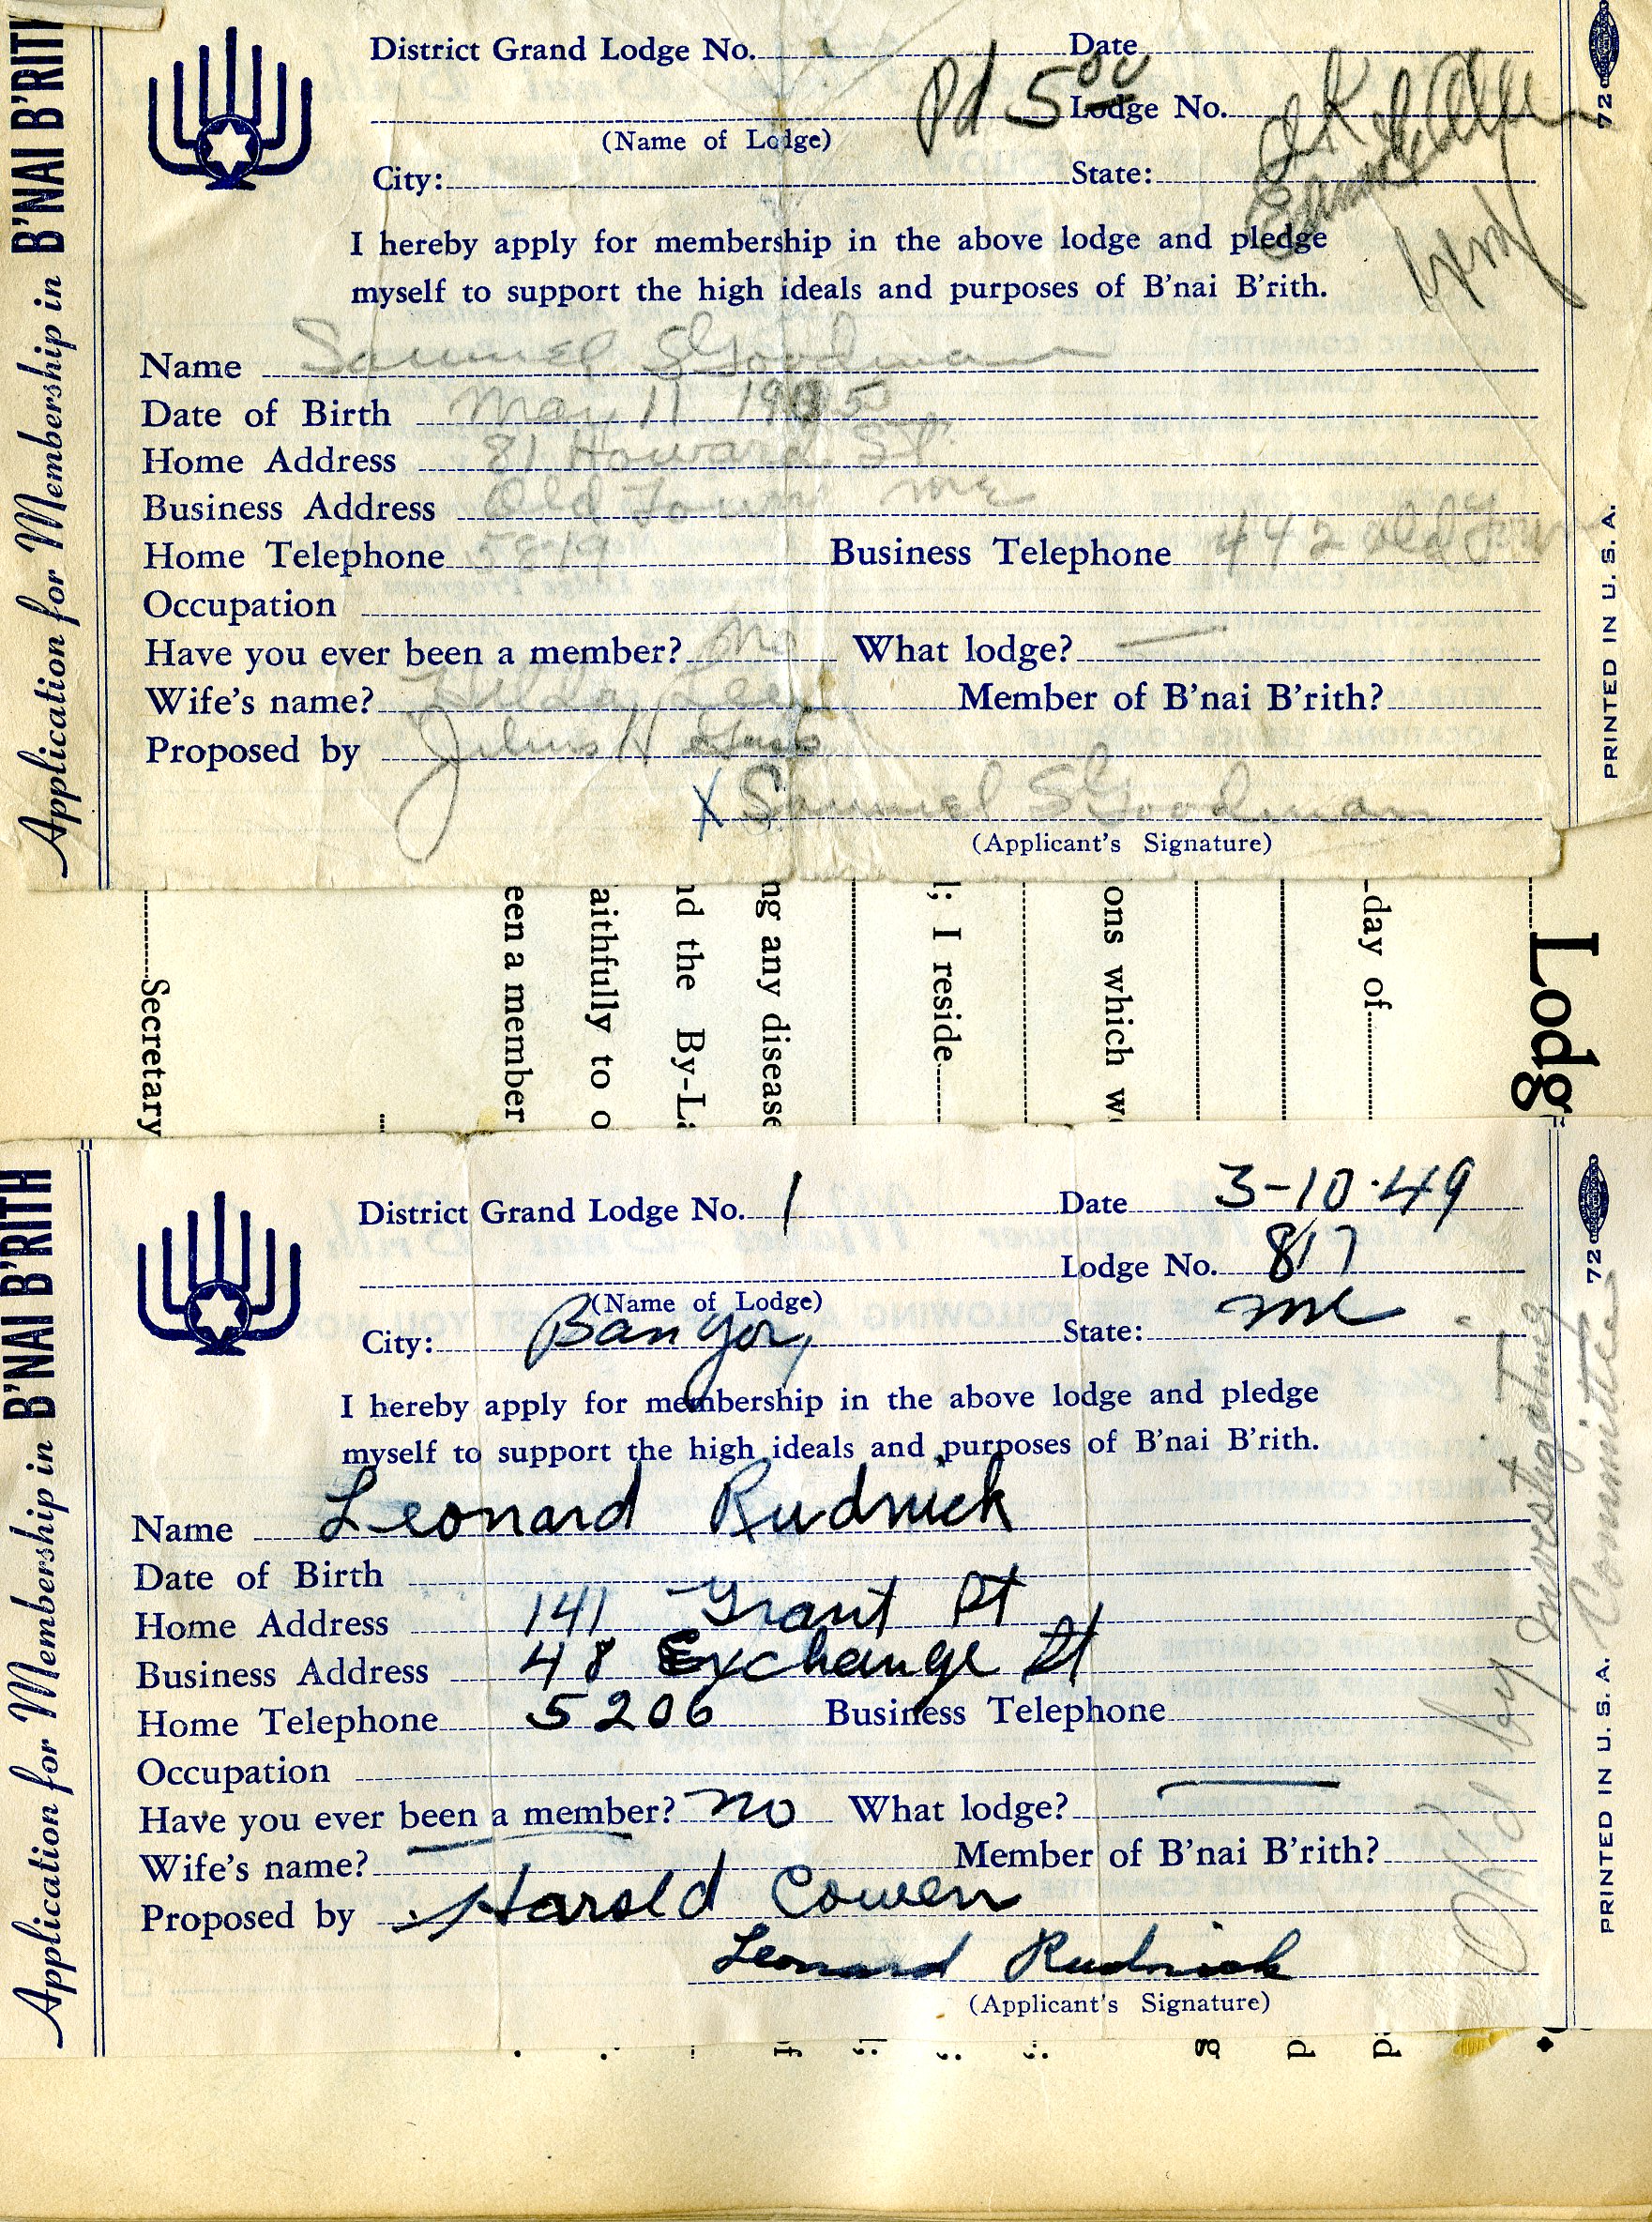 Application for Membership in B'NAI B'RITH
District Grand Lodge No. Date
Pd 5 00
Lodge No.
OK
(Name of Lodge)
City: State:
I hereby apply for membership in the above lodge and pledge
myself to support the high ideals and purposes of B'nai B'rith.
Name Samuel S Goodman
Date of Birth May 11 1905
Home Address 81 Howard St.
Business Address Old Town Me
Home Telephone 5819 Business Telephone 442 Old Town
Occupation
Have you ever been a member? No What lodge? —
Wife's name? Hilda Member of B'nai B'rith?
Proposed by Julius H
X Samuel S Goodman
(Applicant's Signature)
72
PRINTED IN U. S. A.
Secretary
een a member
aithfully to o
nd the By-La
ng any disease
l; I reside
ons which we
day of
Lodg
Application for Membership in B'NAI B'RITH
District Grand Lodge No. 1 Date 3-10-49
Lodge No. 817
(Name of Lodge)
City: Bangor, State: Me
I hereby apply for membership in the above lodge and pledge
myself to support the high ideals and purposes of B'nai B'rith.
Name Leonard Rudnick
Date of Birth
Home Address 141 Grant St
Business Address 48 Exchange St
Home Telephone 5206 Business Telephone
Occupation
Have you ever been a member? no What lodge? —
Wife's name? — Member of B'nai B'rith?
Proposed by Harold Cowen
Leonard Rudnick
(Applicant's Signature)
OK'd by Investigating
Committee
72
PRINTED IN U. S. A.